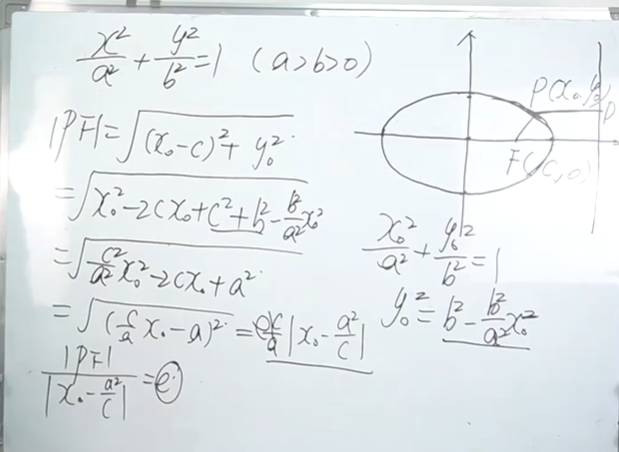 x²/a² + y²/b² = 1 (a>b>0)
|PF| = √((x₀-c)² + y₀²)
= √(x₀² - 2cx₀ + c² + b² - b²/a² x₀²)
= √(c²/a² x₀² - 2cx₀ + a²)
= √((c/a x₀ - a)²) = c/a |x₀ - a²/c|
|PF| / |x₀ - a²/c| = e
P(x₀, y₀)
D
F(c, 0)
x₀²/a² + y₀²/b² = 1
y₀² = b² - b²/a² x₀²